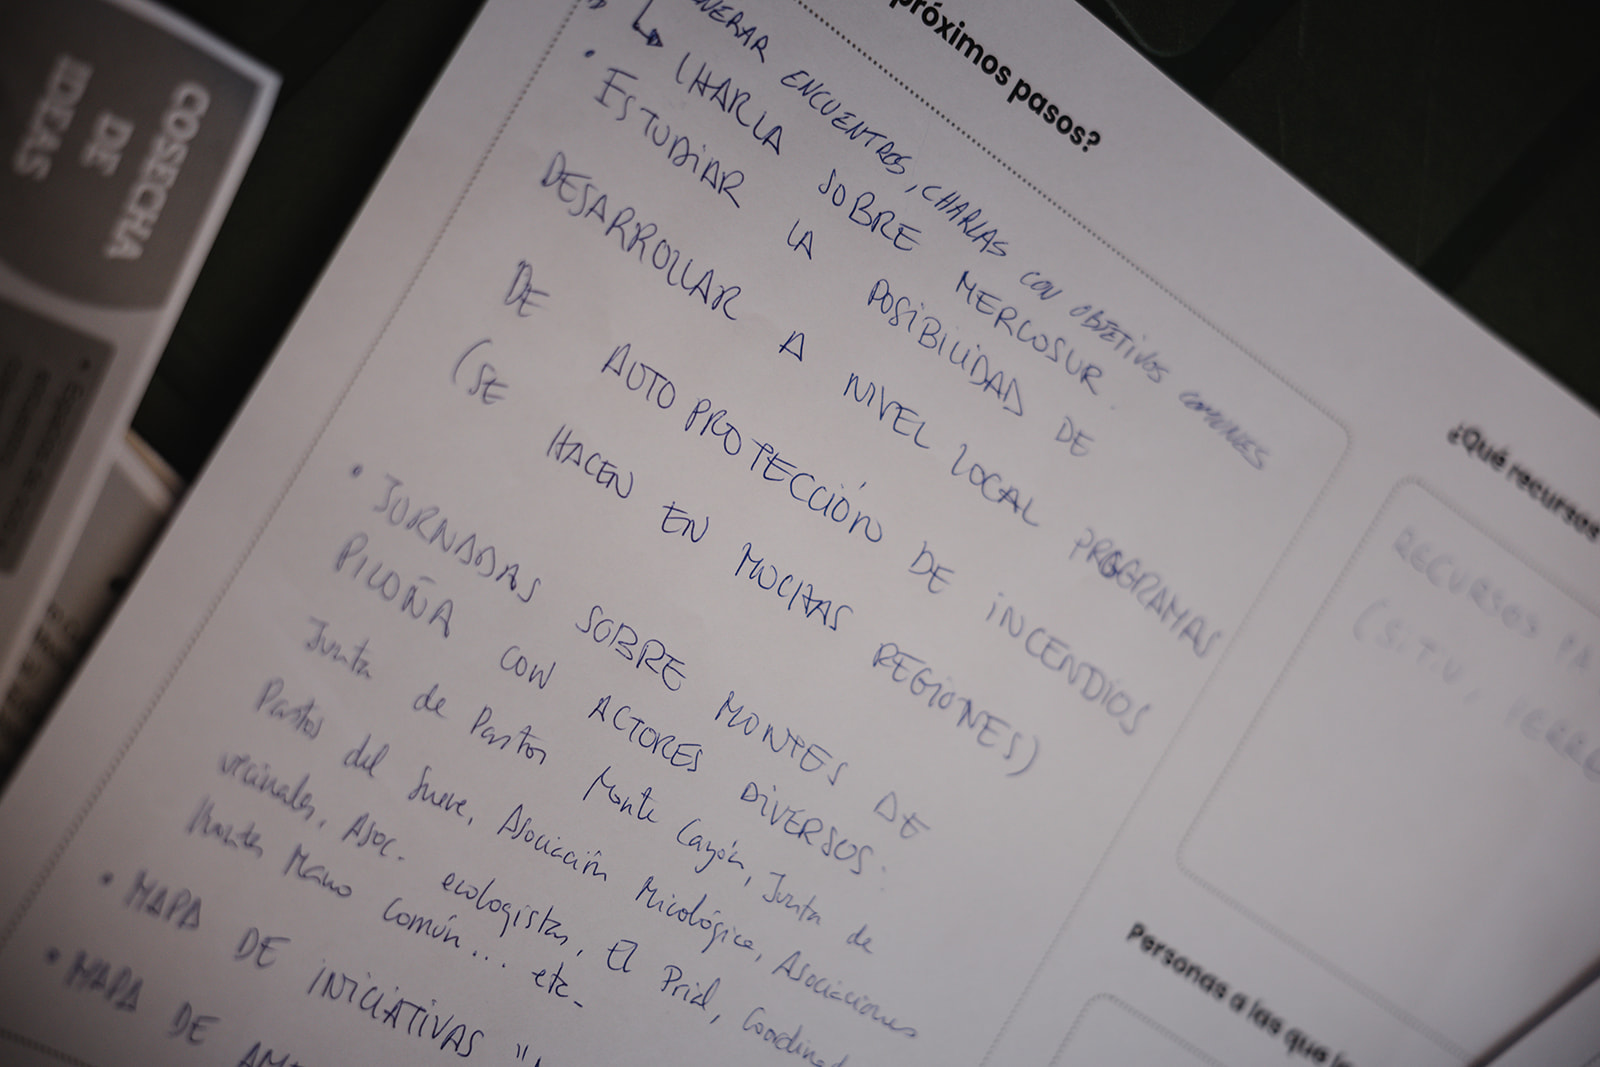 próximos pasos?
ENCUENTROS, CHARLAS CON OBJETIVOS COMUNES
CHARLA SOBRE MERCOSUR.
• ESTUDIAR LA POSIBILIDAD DE
DESARROLLAR A NIVEL LOCAL PROGRAMAS
DE AUTOPROTECCIÓN DE INCENDIOS
(SE HACEN EN MUCHAS REGIONES)
• JORNADAS SOBRE MONTES DE
PILOÑA CON ACTORES DIVERSOS:
Junta de Pastos Monte Cayón, Junta de
Pastos del Sueve, Asociación Micológica, Asociaciones
vecinales, Asoc. ecologistas, El Prial,
Mano Común... etc-
• MAPA DE INICIATIVAS "
• MAPA DE
¿Qué recursos
RECURSOS
Personas a las que
COSECHA
DE
IDEAS